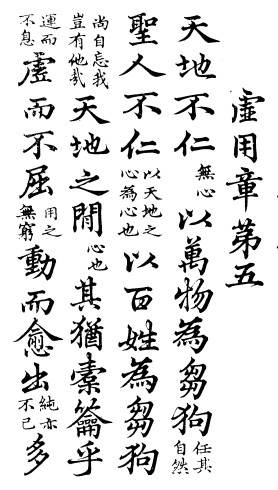 虛用章第五
天地不仁無心以萬物為芻狗任其自然
聖人不仁以天地之心為心也以百姓為芻狗
尚自忘我豈有他哉天地之間心也其猶橐籥乎
運而不息虛而不屈用之無窮動而愈出純亦不已多